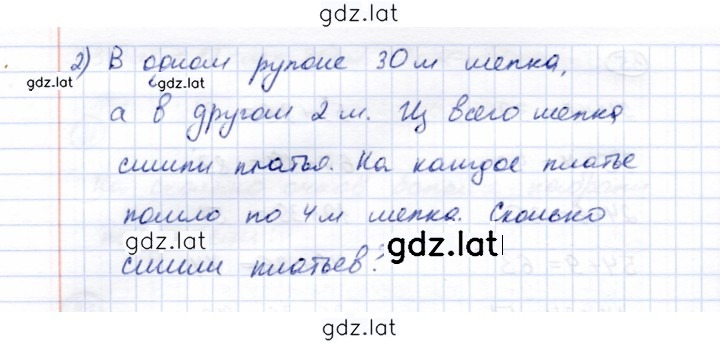 gdz.lat
2) В одном рулоне 30 м шелка,
gdz.lat
gdz.lat
а в другом 2 м. Из всего шелка
сшили платья. На каждое платье
пошло по 4 м шелка. Сколько
gdz.lat
gdz.lat
сшили платьев?
gdz.lat